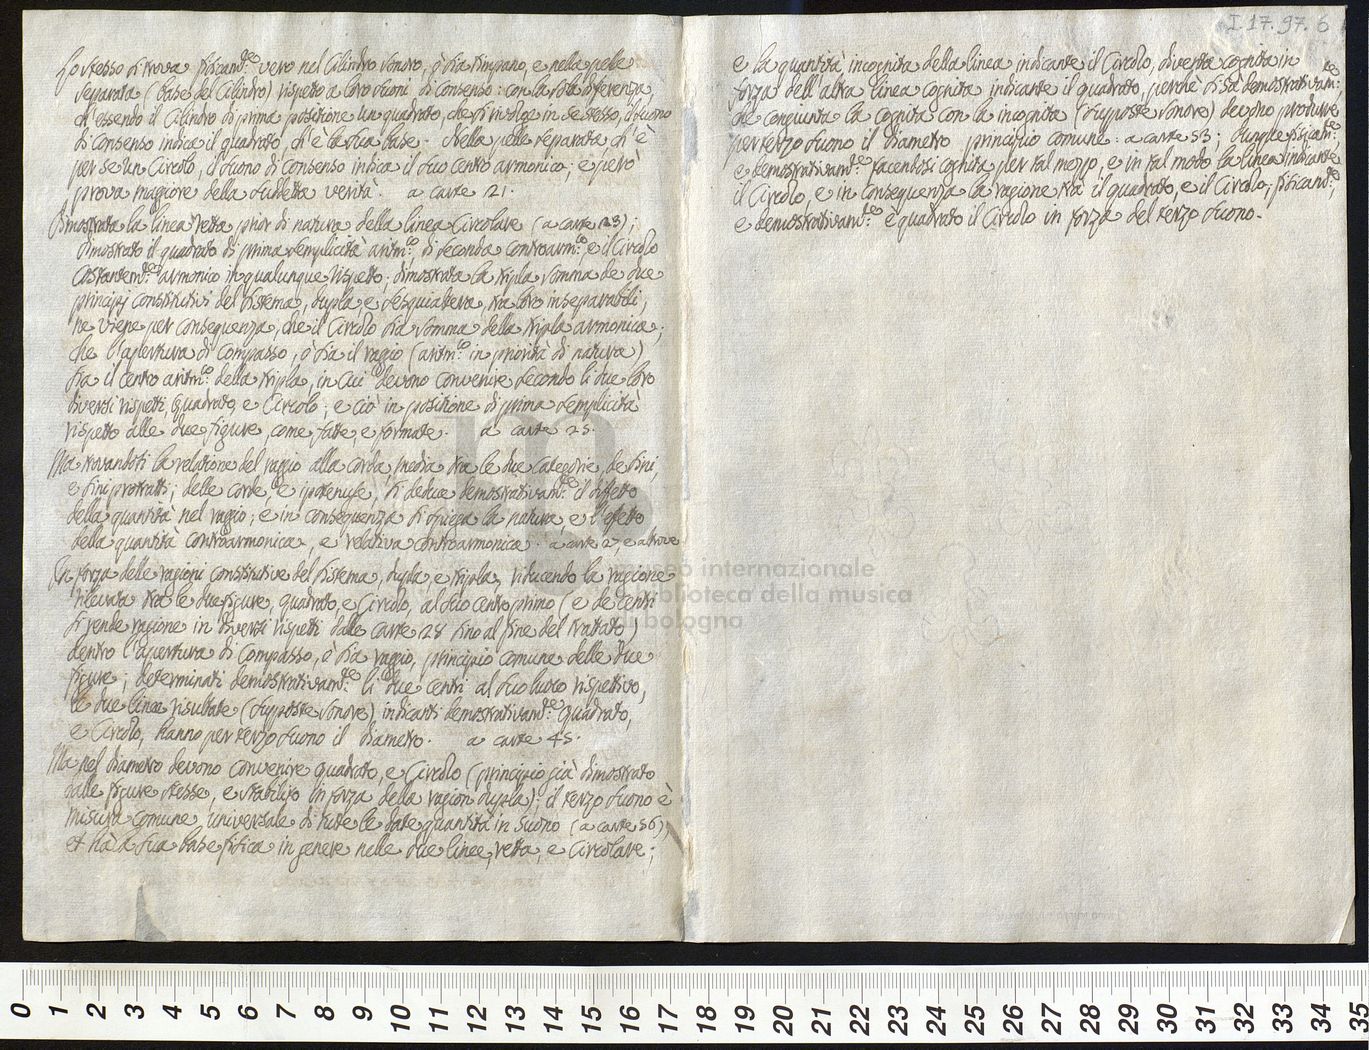 Lo stesso si trova fisicamte. vero nel Cilindro sonoro, ò sia timpano, e nella pelle
separata (base del Cilindro) rispetto a loro suoni di consenso: con la sola diferenza,
ch'essendo il Cilindro di prima positione un quadrato, che si rivolge in se stesso, il suono
di consenso indica il quadrato, ch'è la sua base. Nella pelle separata ch'è
per se un Circolo, il suono di consenso indica il suo centro armonico; e però
prova magiore della sudetta verità. a carte 21.
Dimostrata la linea retta prior di natura della linea Circolare (a carte 23);
dimostrato il quadrato di prima semplicità aritmco. di seconda controarmco. e il Circolo
costantemte. armonico in qualunque rispetto; dimostrata la tripla somma de due
principj constitutivi del sistema, dupla, e sesquialtera, tra loro inseparabili;
ne viene per conseguenza, che il Circolo sia somma della tripla armonica;
che l'apertura di compasso, ò sia il ragio (aritmco. in priorità di natura)
sia il centro aritmco. della tripla, in cui devono convenire secondo li due loro
diversi rispetti, quadrato, e Circolo; e ciò in positione di prima semplicità
rispetto alle due figure, come fatte e formate. a carte 25.
Ma trovandosi la relatione del ragio alla corda, media tra le due categorie, de sini,
e sini protratti; delle corde, e ipotenuse, si deduce demostrativamte. il difetto
della quantità nel ragio; e in conseguenza si spiega la natura, e l'efetto
della quantità controarmonica, e relativa controarmonica. a carte 27, e altrove.
In forza delle ragioni constitutive del sistema, dupla, e tripla, riducendo la ragione
rilevata tra le due figure, quadrato, e Circolo, al suo centro primo (e de centri
si rende ragione in diversi rispetti dalle carte 28 sino al fine del trattato)
dentro l'apertura di Compasso, ò sia ragio, principio comune delle due
figure; determinati demostrativamte. li due centri al suo luoco rispettivo,
le due linee risultate (supposte sonore), indicanti demostrativamte. quadrato,
e Circolo, hanno per terzo suono il diametro. a carte 45.
Ma nel diametro devono convenire quadrato, e Circolo (principio già dimostrato
dalle figure stesse, e stabilito in forza della ragion dupla): il terzo suono è
misura comune universale di tutte le date quantità in suono (a carte 36)
et hà la sua base fisica in genere nelle due linee, retta, e Circolare;
I.17.97.6
e la quantità incognita della linea indicante il Circolo, diventa cognita in
forza dell'altra linea cognita indicante il quadrato, perchè si sà demostrativamte.
che congiunta la cognita con la incognita (supposte sonore) devono produrre
per terzo suono il diametro principio comune. a carte 53. Dunque fisicamte.
e demostrativamte. facendosi cognita per tal mezzo, e in tal modo la linea indicante
il Circolo, e in conseguenza la ragione tra il quadrato, e il Circolo; fisicamte.,
e demostrativamte. è quadrato il Circolo in forza del terzo suono.
museo internazionale
e biblioteca della musica
di bologna
0 1 2 3 4 5 6 7 8 9 10 11 12 13 14 15 16 17 18 19 20 21 22 23 24 25 26 27 28 29 30 31 32 33 34 35